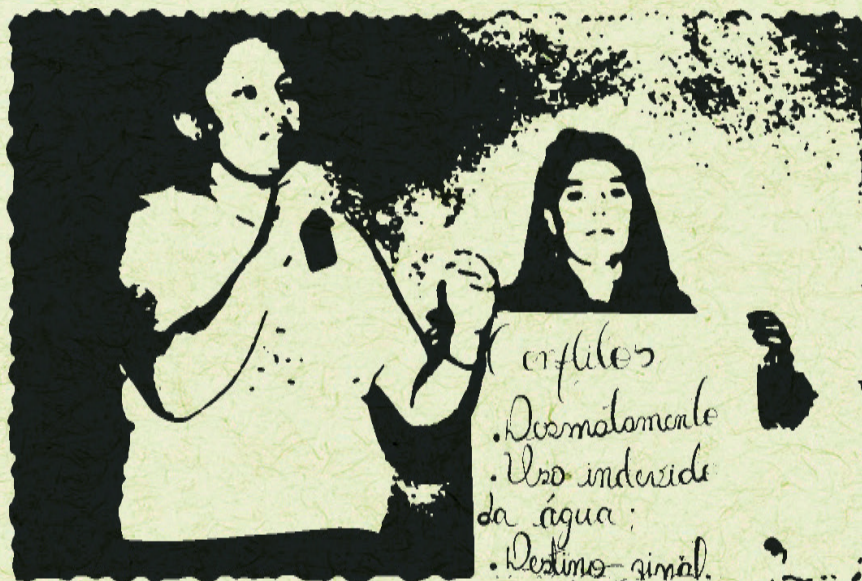 Conflitos
. Desmatamento
. Uso indevido
da água;
. Destino final